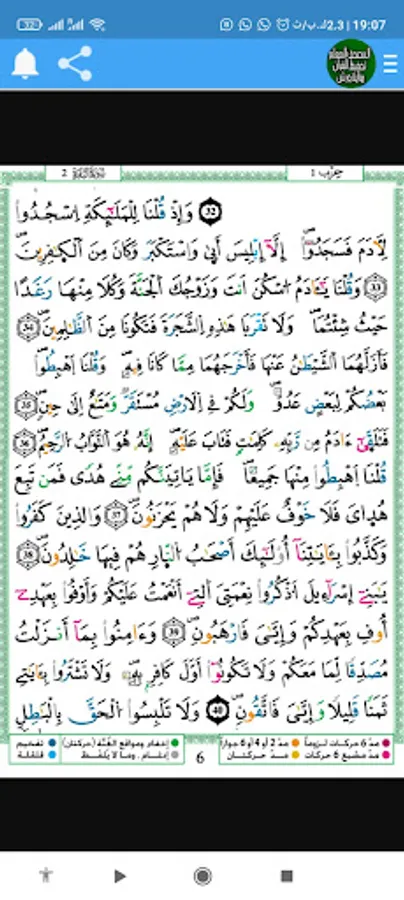 32
2.3ك.ب/ث | 19:07
سورة البقرة 2
حزب 1
(32) وَإِذْ قُلْنَا لِلْمَلَٰٓئِكَةِ اِ۟سْجُدُوا۟
لِأٓدَمَ فَسَجَدُوٓا۟ إِلَّآ إِبْلِيسَ أَبٜىٰ وَاسْتَكْبَرَ وَكَانَ مِنَ اَ۬لْكٰٜفِرِينَ
(33) وَقُلْنَا يَٰٓـَٔادَمُ اُ۟سْكُنَ اَنتَ وَزَوْجُكَ اَ۬لْجَنَّةَ وَكُلَا مِنْهَا رَغَداً
حَيْثُ شِئْتُمَا وَلَا تَقْرَبَا هَٰذِهِ اِ۬لشَّجَرَةَ فَتَكُونَا مِنَ اَ۬لظَّٰلِمِينَ (34)
فَأَزَلَّهُمَا اَ۬لشَّيْطَٰنُ عَنْهَا فَأَخْرَجَهُمَا مِمَّا كَانَا فِيهِ وَقُلْنَا اَ۪هْبِطُوا۟
بَعْضُكُمْ لِبَعْضٍ عَدُوّٞ وَلَكُمْ فِے اِ۬لَارْضِ مُسْتَقَرّٞ وَمَتَٰعٌ اِلَىٰ حِينٖ (35)
فَتَلَقّٜىٰٓ ءَادَمُ مِن رَّبِّهِۦ كَلِمَٰتٖ فَتَابَ عَلَيْهِ إِنَّهُۥ هُوَ اَ۬لتَّوَّابُ اُ۬لرَّحِيمُ (36)
قُلْنَا اَ۪هْبِطُوا۟ مِنْهَا جَمِيعاٗ فَإِمَّا يَاتِيَنَّكُم مِّنِّے هُدٗى فَمَن تَبِعَ
هُدَايَ فَلَا خَوْفٌ عَلَيْهِمْ وَلَا هُمْ يَحْزَنُونَ (37) وَالذِينَ كَفَرُوا۟
وَكَذَّبُوا۟ بِـَٔايَٰتِنَآ أُو۟لَٰٓئِكَ أَصْحَٰبُ اُ۬لنّ۪ارِ هُمْ فِيهَا خَٰلِدُونَ (38)
يَٰبَنِےٓ إِسْرَآءِيلَ اَ۟ذْكُرُوا۟ نِعْمَتِيَ اَ۬لتِےٓ أَنْعَمْتُ عَلَيْكُمْ وَأَوْفُوا۟ بِعَهْدِےٓ
أُوفِ بِعَهْدِكُمْ وَإِيَّٰىَ فَارْهَبُونِ (39) وَءَامِنُوا۟ بِمَآ أَنزَلْتُ
مُصَدِّقاٗ لِّمَا مَعَكُمْ وَلَا تَكُونُوٓا۟ أَوَّلَ كَافِرِۢ بِهِۦ وَلَا تَشْتَرُوا۟ بِـَٔايَٰتِے
ثَمَناٗ قَلِيلاٗ وَإِيَّٰىَ فَاتَّقُونِ (40) وَلَا تَلْبِسُوا۟ اُ۬لْحَقَّ بِالْبَٰطِلِ
مدّ 6 حركات لزوماً مدّ 2 أو 4 أو 6 جوازاً إخفاء ومواقع الغنّة (حركتان) تفخيم
مدّ مشبع 6 حركات مدّ حركتان إدغام، وما لا يُلفظ قلقلة
6